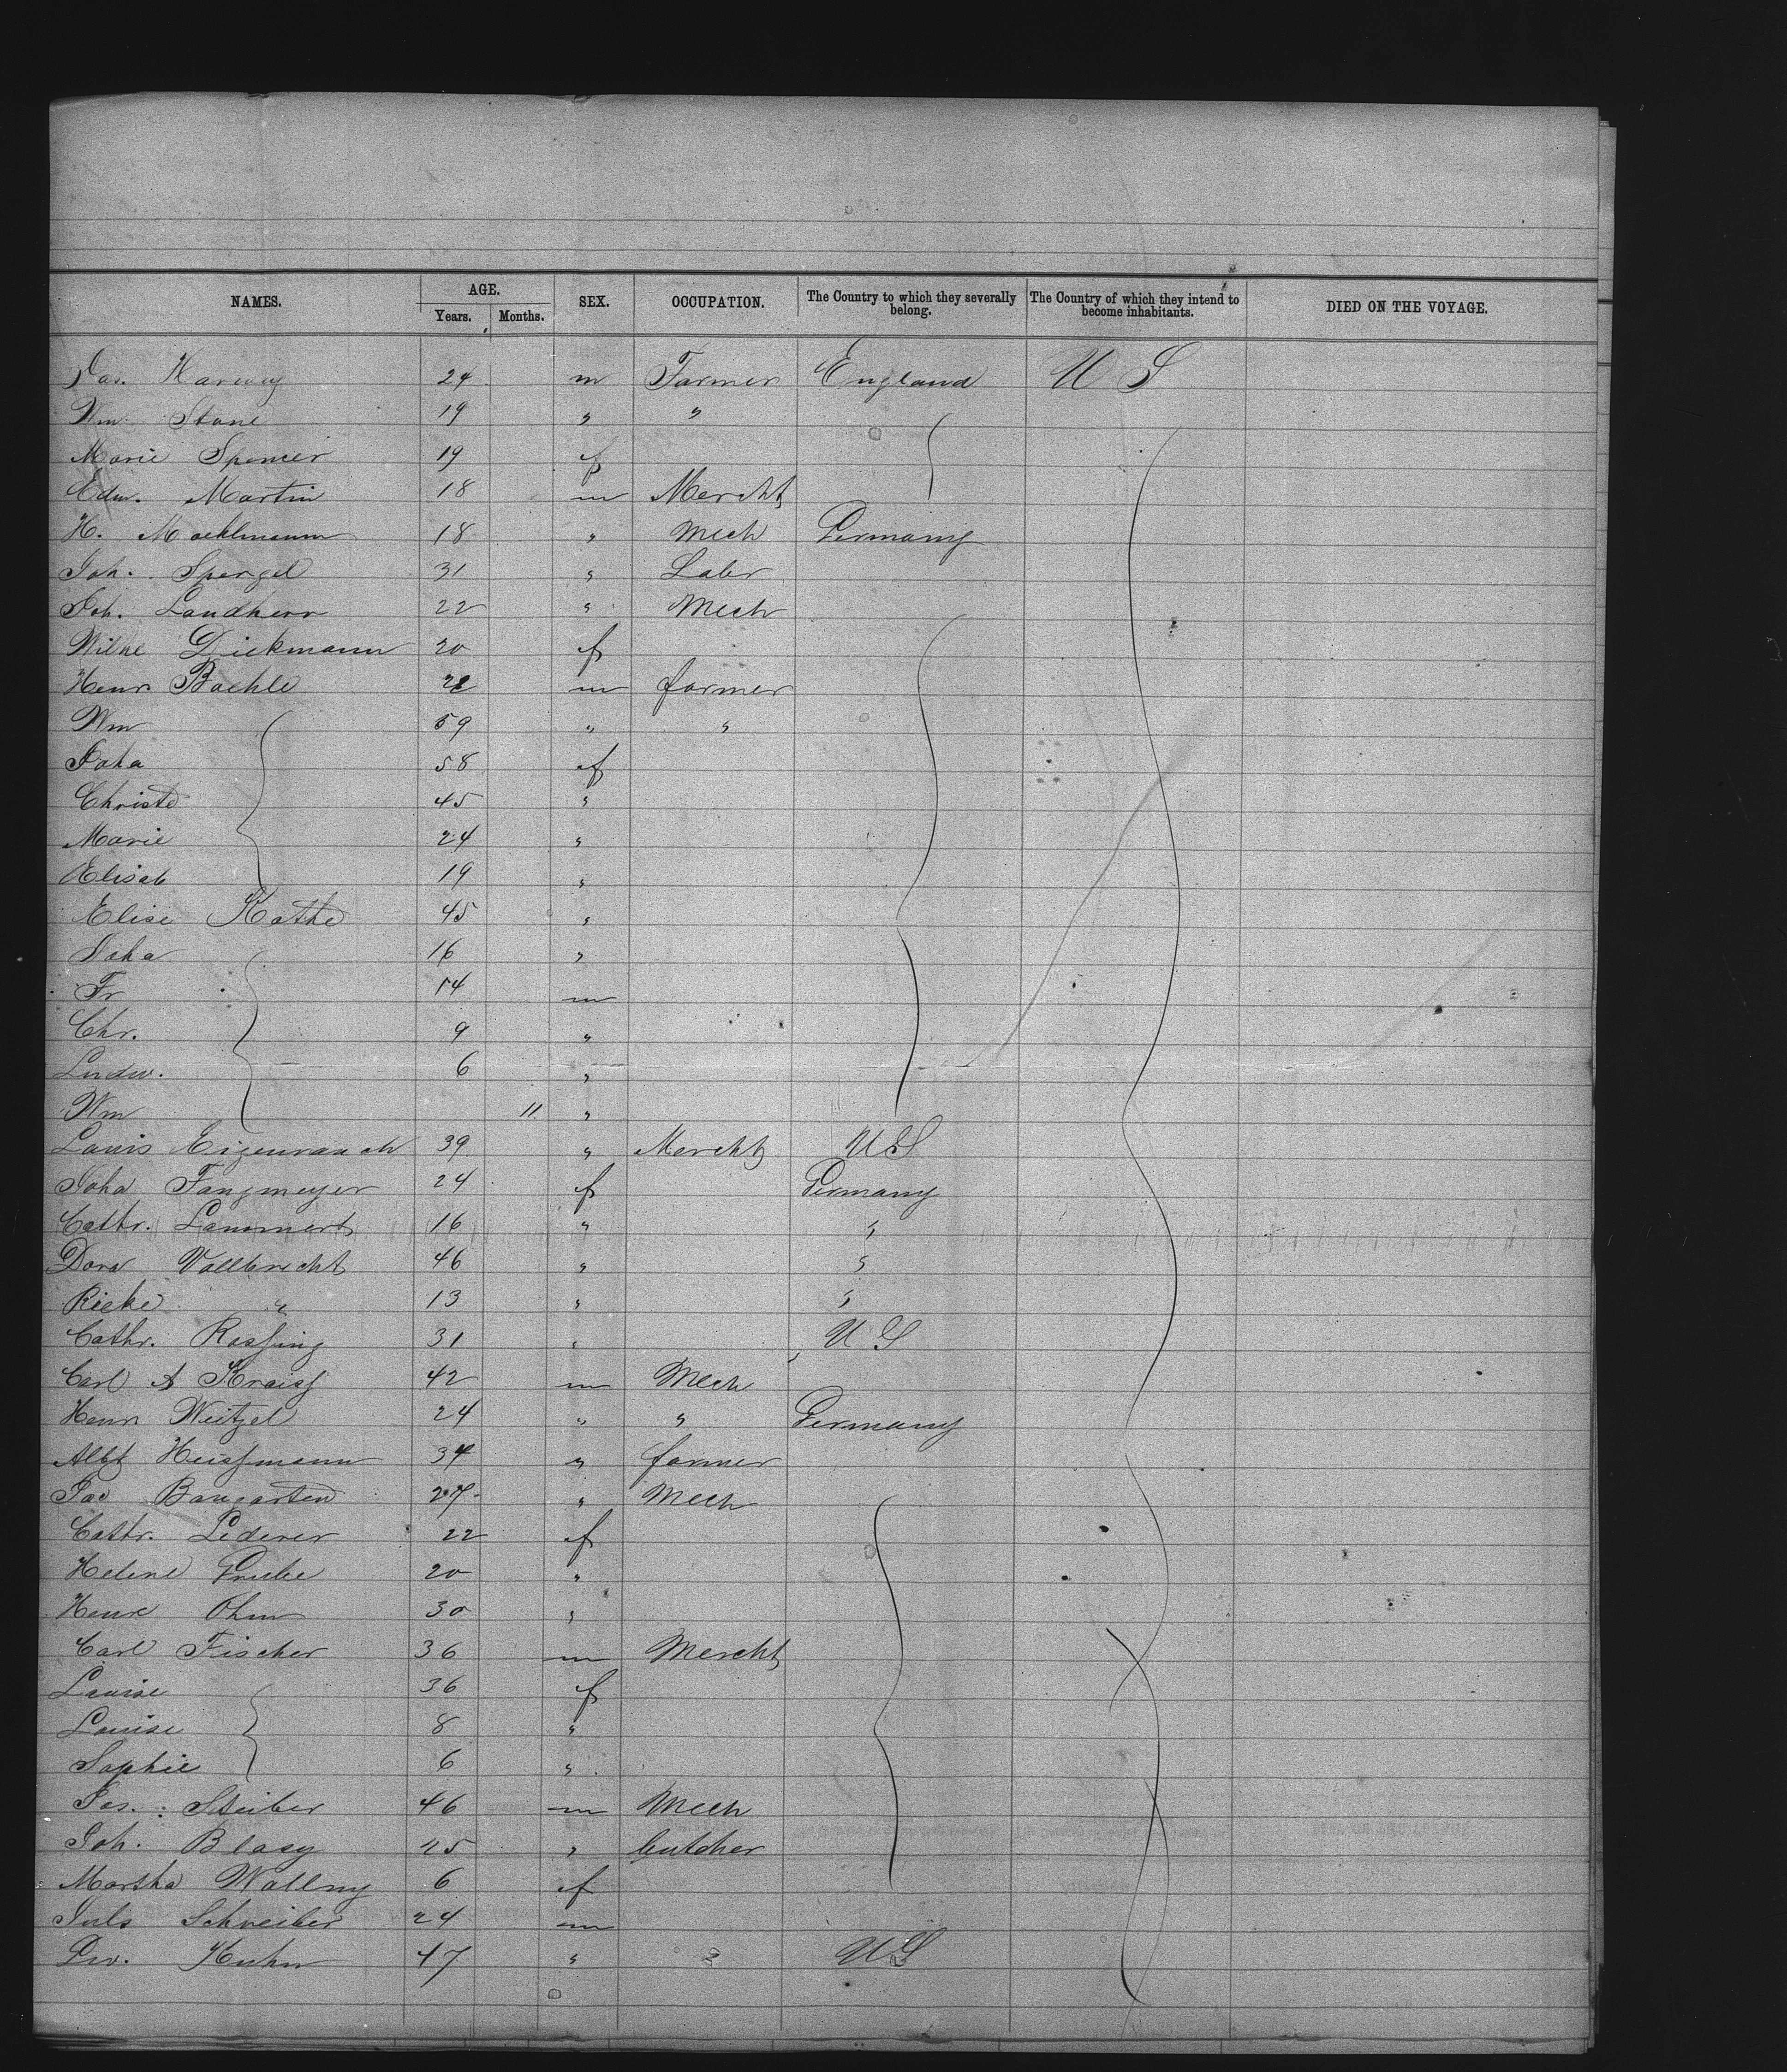 NAMES. AGE. SEX. OCCUPATION. The Country to which they severally belong. The Country of which they intend to become inhabitants. DIED ON THE VOYAGE.
Years. Months.
Jas. Harvey 24 m Farmer England U S
Wm Stone 19 " "
Marie Spencer 19 f
Edw. Martin 18 m Mercht
H. Moehlmann 18 " Mech Germany
Joh. Spengel 31 " Labr
Joh. Landherr 22 " Mech
Wilhe Dickmann 20 f
Henr Boehle 22 m farmer
Wm 59 " "
Joha 58 f
Christe 45 "
Marie 24 "
Elisab 19 "
Elise Kothe 45 "
Joha 16 "
Fr 14 m
Chr. 9 "
Ludw. 6 "
Wm 11 "
Louis Eizenrauch 39 " Mercht US
Joha Fangmeyer 24 f Germany
Cathr. Lammert 16 " "
Dora Vollbrecht 46 " "
Rieke " 13 " "
Cathr. Rossing 31 " U S
Carl A Kraiss 42 m Mech
Henr Weitzel 24 " " Germany
Albt Heissmann 34 " farmer
Jac Baugarten 27 " Mech
Cathr. Lederer 22 f
Helene Grube 20 "
Henre Ohm 30 "
Carl Fischer 36 m Mercht
Louise 36 f
Louise 8 "
Sophie 6 "
Jos. Steiber 46 m Mech
Joh. Blasy 25 " butcher
Martha Wallny 6 f
Juls Schreiber 24 m
Kuhn 47 " " US